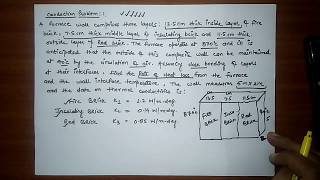 Conduction Problem: 1
A furnace wall comprises three layers: 13.5 cm thick inside layer of fire
brick, 7.5 cm thick middle layer of insulating brick and 11.5 cm thick
outside layer of Red brick. The furnace operates at 870°C and it is
anticipated that the outside of this composite wall can be maintained
at 40°C by the circulation of air. Assuming close bonding of layers
at their interfaces. Find the Rate of heat loss from the furnace
and the wall interface temperature. The wall measures 5m x 2m
and the data on thermal conductivities is:
Fire Brick K1 = 1.2 W/m-deg
Insulating Brick K2 = 0.14 W/m-deg
Red Brick K3 = 0.85 W/m-deg
13.5 7.5 11.5
870°C
Fire Brick
Brick
Red Brick